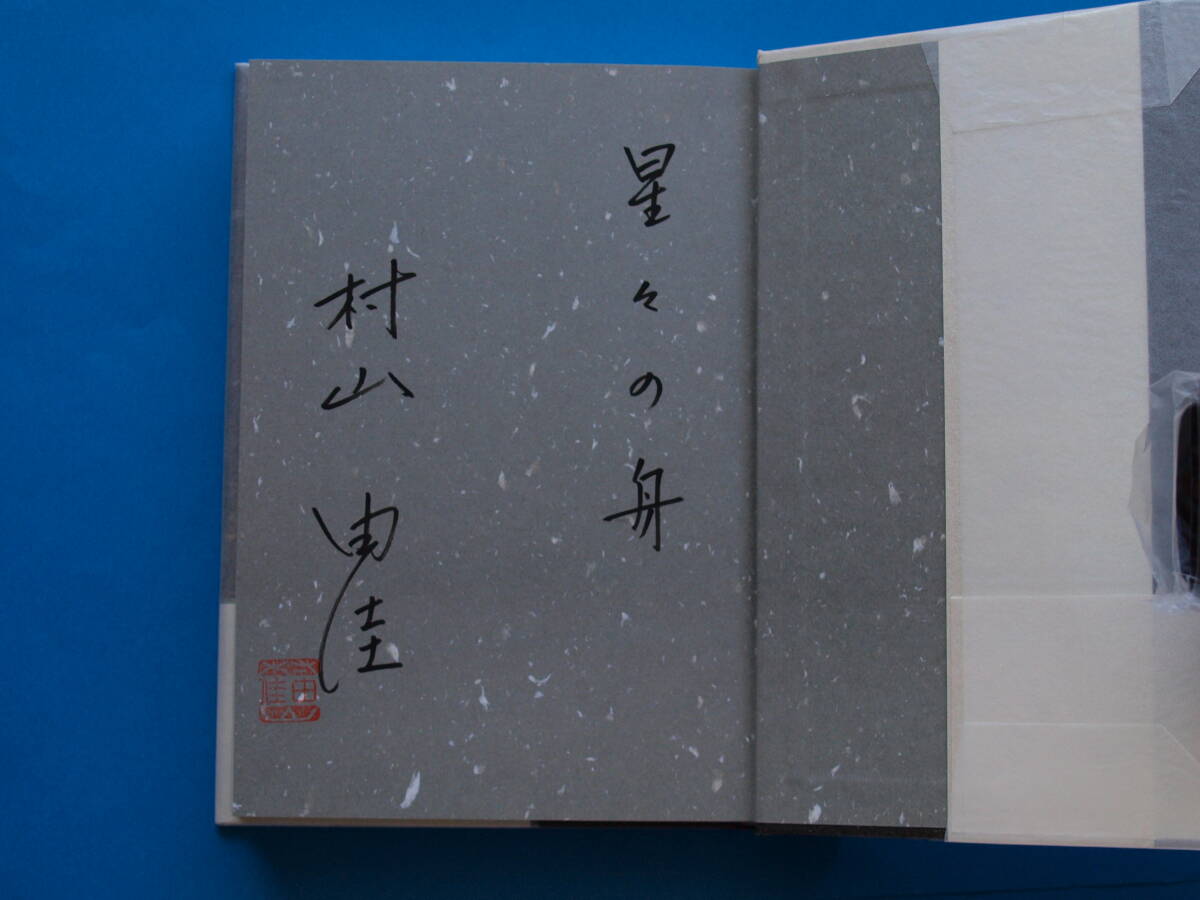 星々の舟
村山由佳
由佳